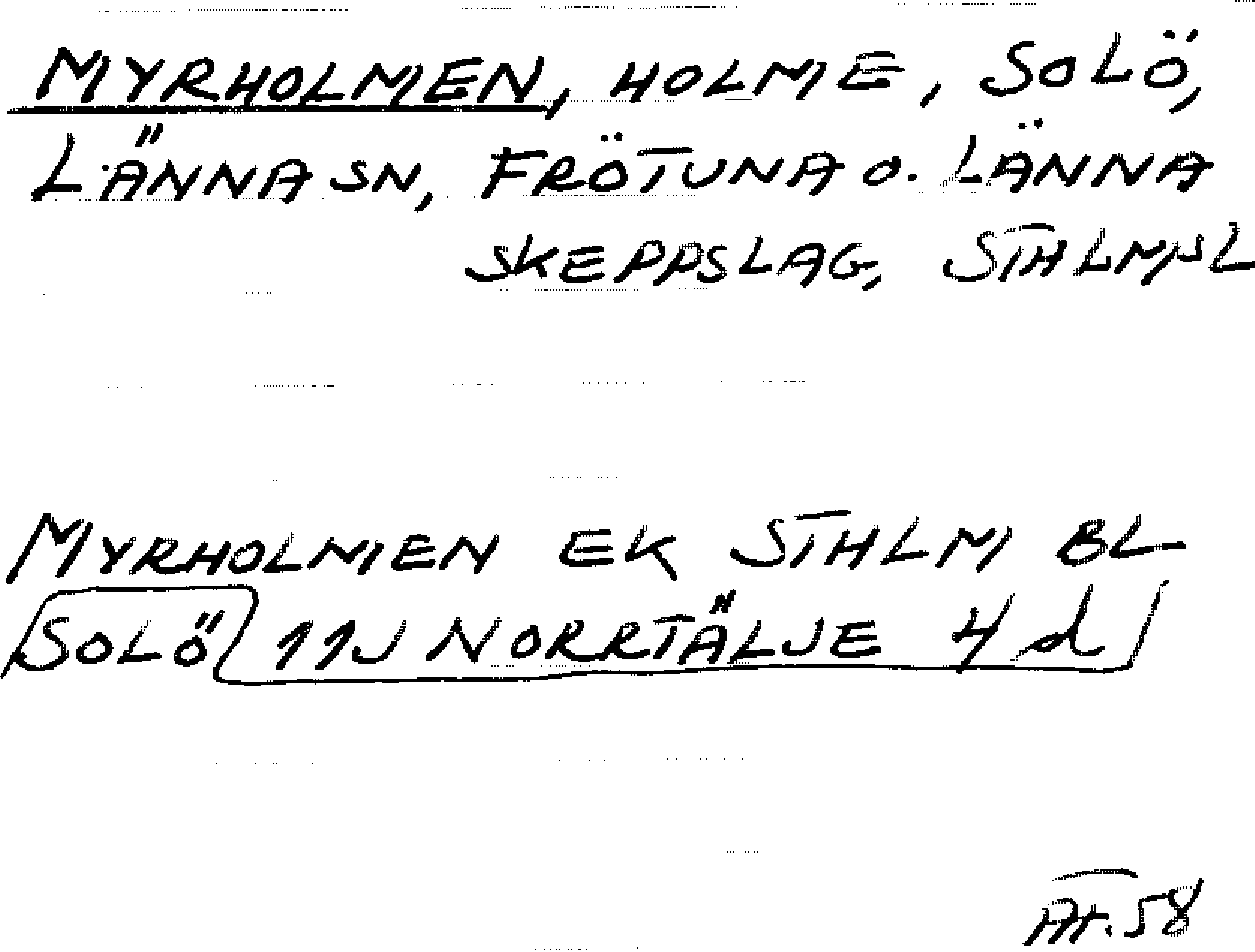 MYRHOLMEN, HOLME, SOLÖ,
LÄNNA SN, FRÖTUNA O. LÄNNA
SKEPPSLAG, STHLMSL
MYRHOLMEN EK STHLM BL
SOLÖ 11J NORRTÄLJE 4 d